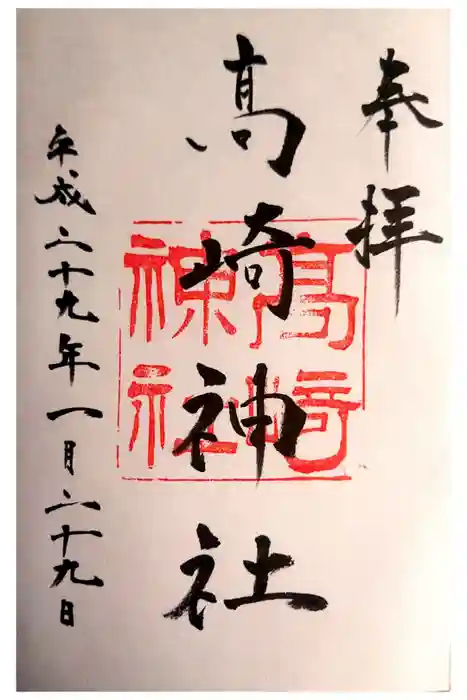 奉拝
高崎神社
高崎神社
平成二十九年一月二十九日